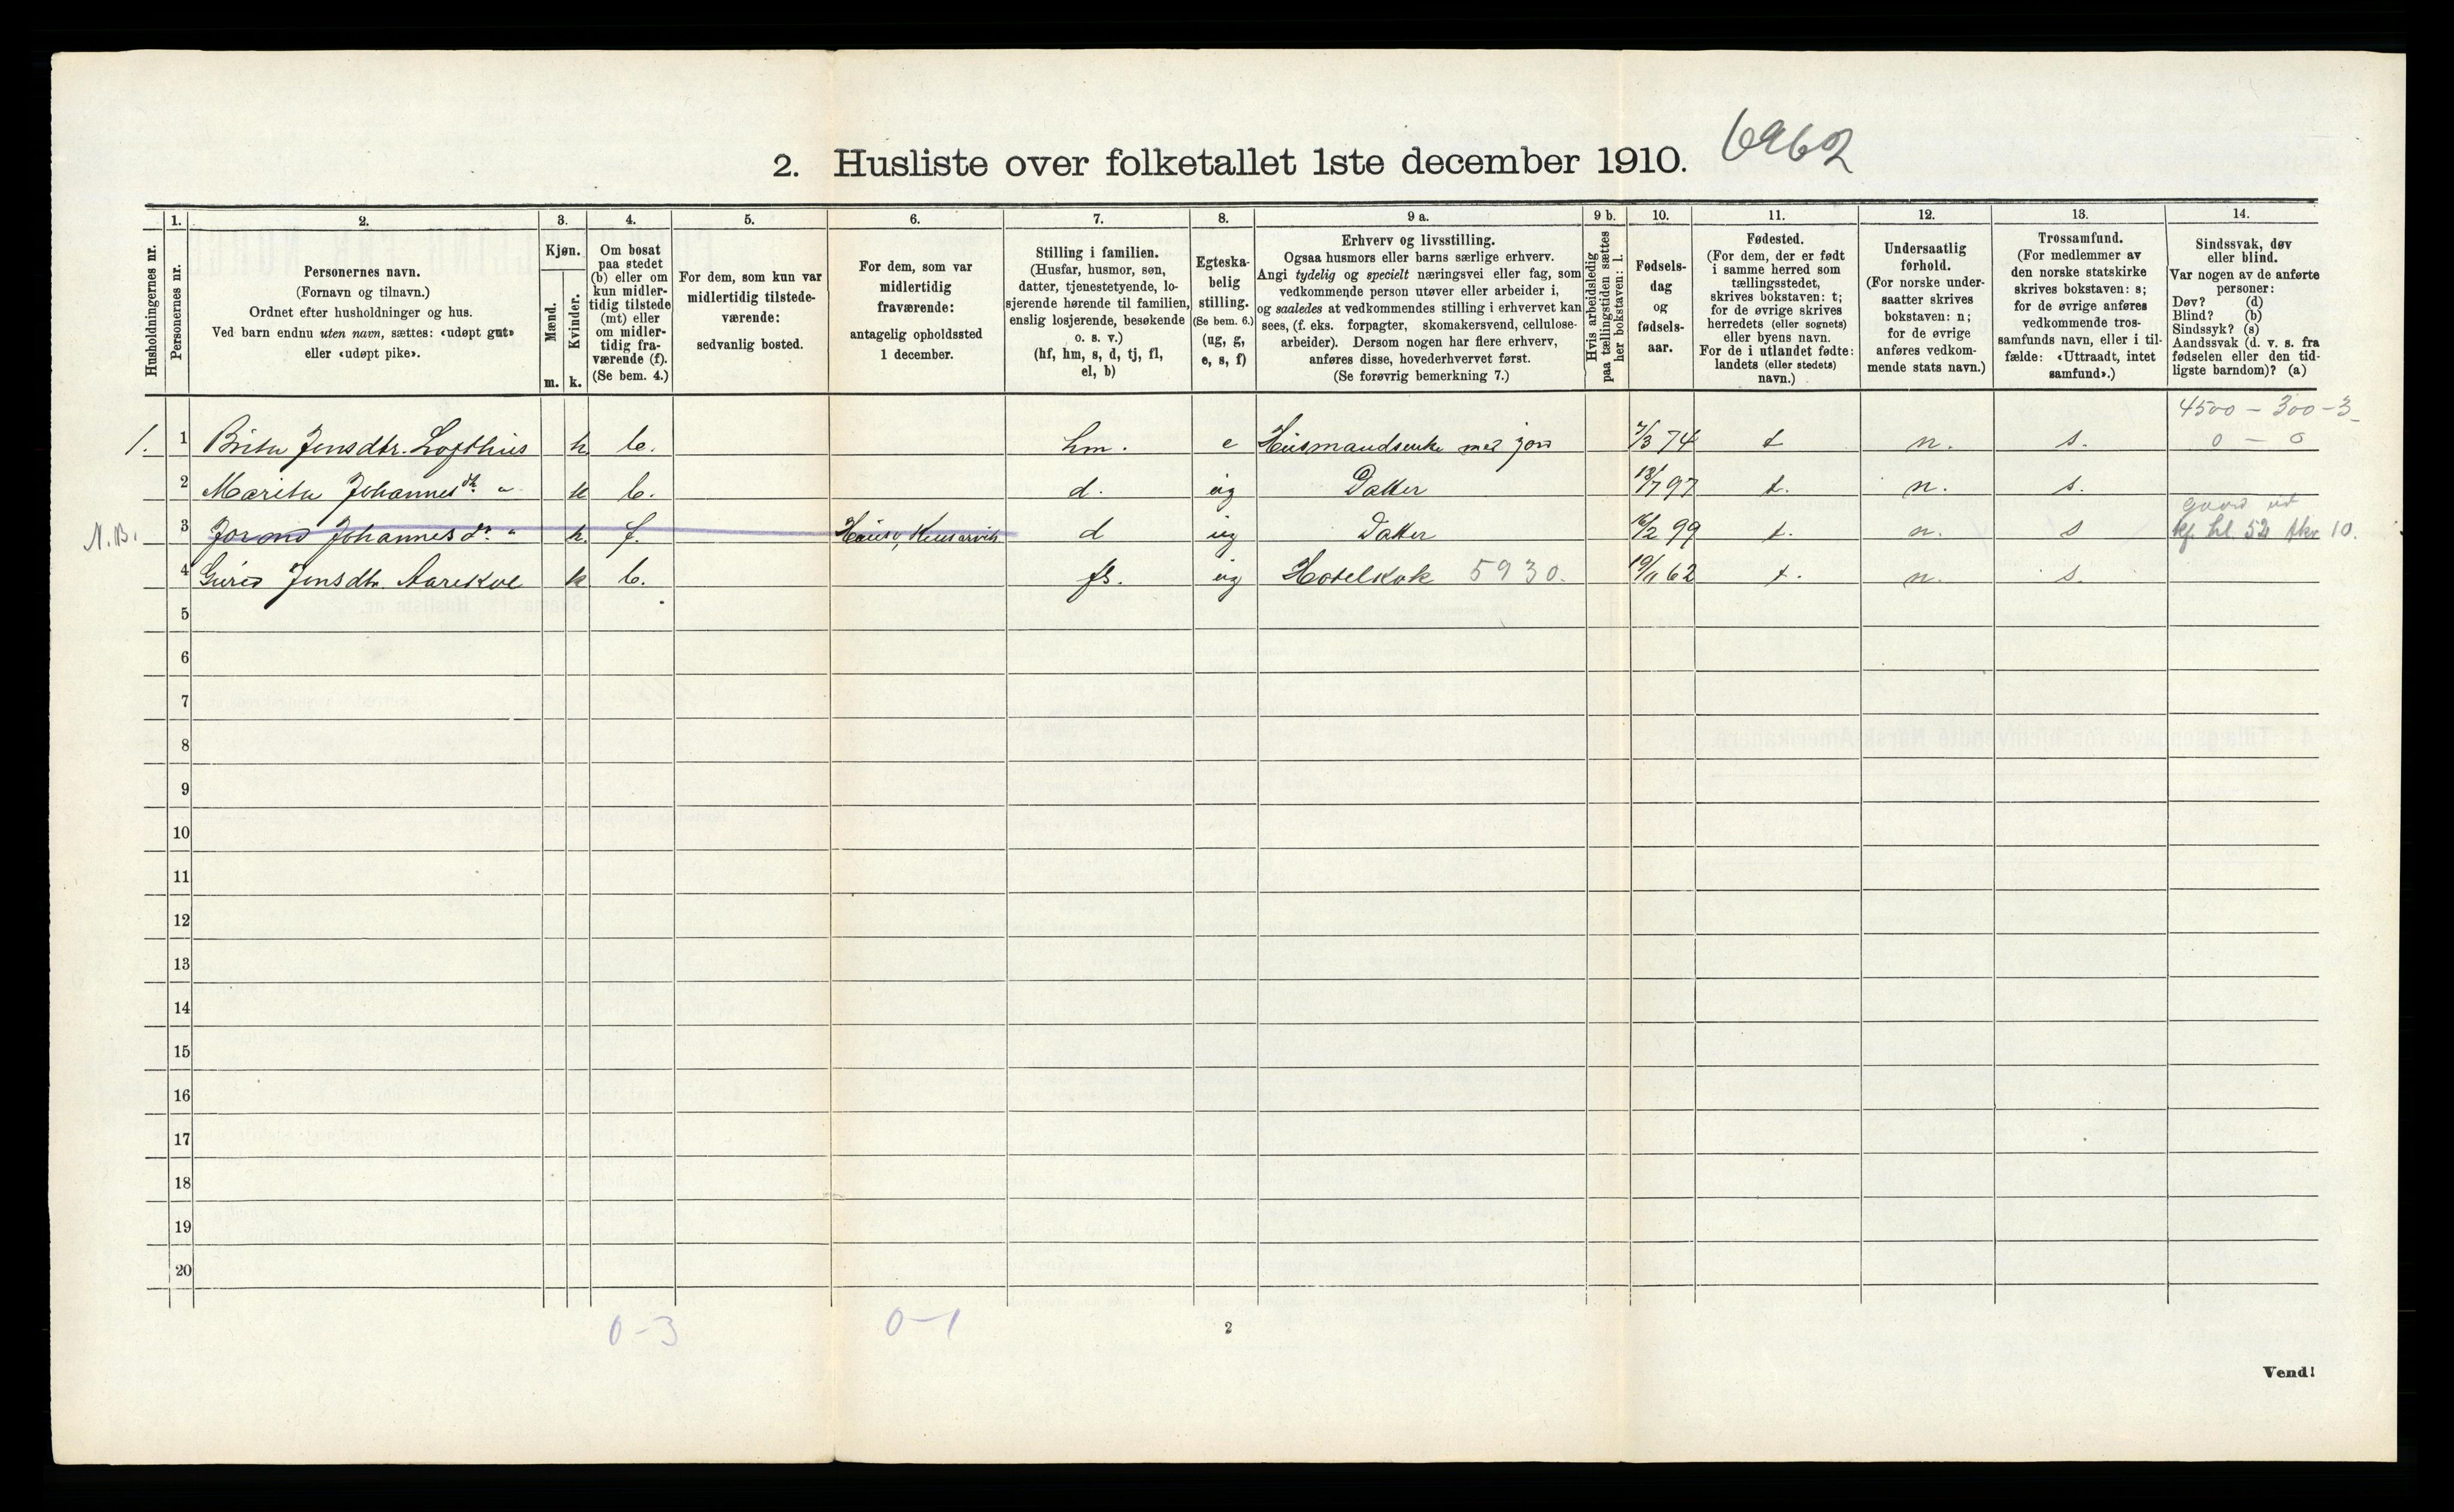 2. Husliste over folketallet 1ste december 1910. 6962
Husholdningernes nr.
1. Personernes nr.
2. Personernes navn.
(Fornavn og tilnavn.)
Ordnet efter husholdninger og hus.
Ved barn endnu uten navn, sættes: «udøpt gut»
eller «udøpt pike».
3. Kjøn.
Mænd. m.
Kvinder. k.
4. Om bosat
paa stedet
(b) eller om
kun midler-
tidig tilstede
(mt) eller
om midler-
tidig fra-
værende (f).
(Se bem. 4.)
5. For dem, som kun var
midlertidig tilstede-
værende:
sedvanlig bosted.
6. For dem, som var
midlertidig
fraværende:
antagelig opholdssted
1 december.
7. Stilling i familien.
(Husfar, husmor, søn,
datter, tjenestetyende, lo-
sjerende hørende til familien,
enslig losjerende, besøkende
o. s. v.)
(hf, hm, s, d, tj, fl,
el, b)
8. Egteska-
belig
stilling.
(Se bem. 6.)
(ug, g,
e, s, f)
9 a. Erhverv og livsstilling.
Ogsaa husmors eller barns særlige erhverv.
Angi tydelig og specielt næringsvei eller fag, som
vedkommende person utøver eller arbeider i,
og saaledes at vedkommendes stilling i erhvervet kan
sees, (f. eks. forpagter, skomakersvend, cellulose-
arbeider). Dersom nogen har flere erhverv,
anføres disse, hovederhvervet først.
(Se forøvrig bemerkning 7.)
9 b. Hvis arbeidsledig
paa tællingstiden sættes
her bokstaven: l.
10. Fødsels-
dag
og
fødsels-
aar.
11. Fødested.
(For dem, der er født
i samme herred som
tællingsstedet,
skrives bokstaven: t;
for de øvrige skrives
herredets (eller sognets)
eller byens navn.
For de i utlandet fødte:
landets (eller stedets)
navn.)
12. Undersaatlig
forhold.
(For norske under-
saatter skrives
bokstaven: n;
for de øvrige
anføres vedkom-
mende stats navn.)
13. Trossamfund.
(For medlemmer av
den norske statskirke
skrives bokstaven: s;
for de øvrige anføres
vedkommende tros-
samfunds navn, eller i til-
fælde: «Uttraadt, intet
samfund».)
14. Sindssvak, døv
eller blind.
Var nogen av de anførte
personer:
Døv? (d)
Blind? (b)
Sindssyk? (s)
Aandssvak (d. v. s. fra
fødselen eller den tid-
ligste barndom)? (a)
4500 – 300 – 3
1. 1 Brita Jensdtr. Lofthus k b. hm. e Husmandsenke med jord 7/3 74 t n. s. 0 – 0
2 Marita Johannesdtr. " k b. d. ug Datter 13/7 97 t. n. s.
N.B. 3 Johannesdr. " k. f. d ug Datter 16/2 99 t. n. s
4 Gurid Jensdtr. k b. fl. ug Hotelkok 5930. 19/11 62 t. n. s.
5
6
7
8
9
10
11
12
13
14
15
16
17
18
19
20
0–3 0–1
2
Vend!